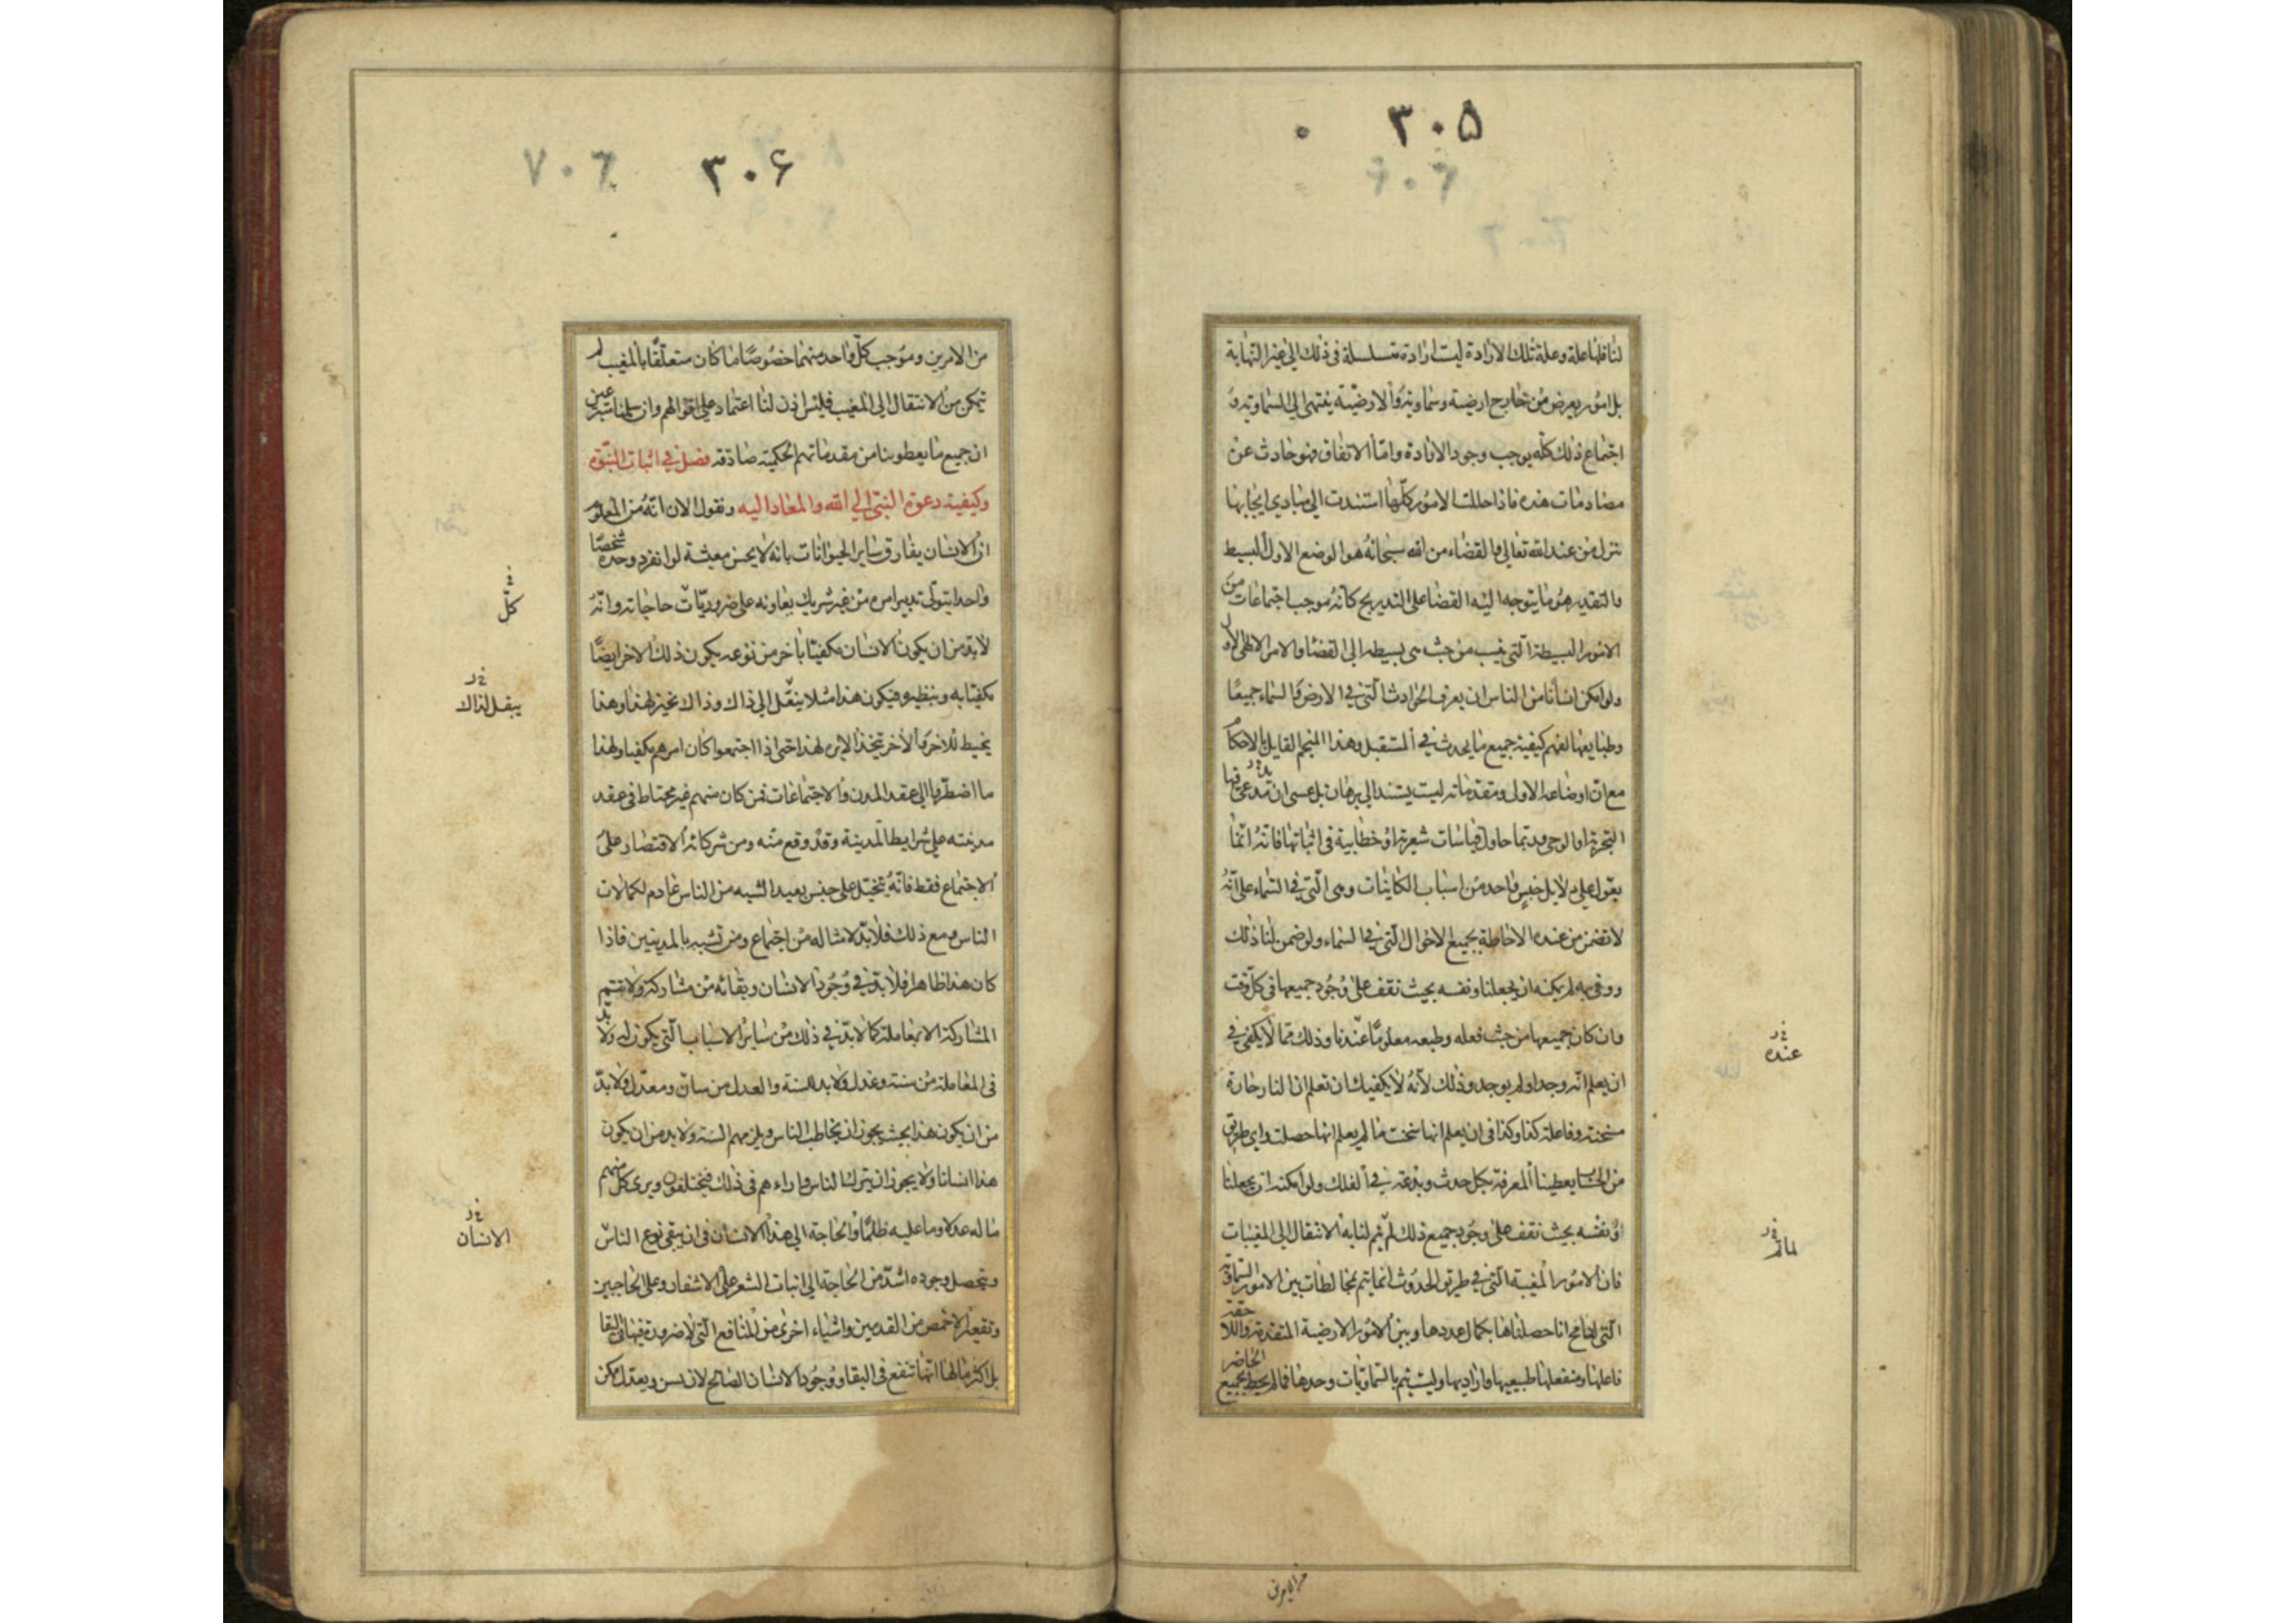 ۳۰۵
لنا فلها علة وعلة تلك الارادة ليست ارادة متسلسلة فى ذلك الى غير النهاية
بل امور يعرض من خارج ارضية وسماوية والارضية ينتهى الى السماوية و
اجتماع ذلك كله يوجب وجود الارادة واما الاتفاق فهو حادث عن
مصادمات هذه فاذا حللت الامور كلها استندت الى مبادى ايجابها
تنزل من عند الله تعالى فالقضاء من الله سبحانه هو الوضع الاول البسيط
والتقدير هو ما يتوجه اليه القضا على التدريج كانه موجب اجتماعات من
الامور البسيطة التى ينسب من حيث هى بسيطة الى القضا والامر الالهى الاول
ولو امكن انسانا من الناس ان يعرف الحوادث التى فى الارض والسماء جميعا
وطبايعها لفهم كيفية جميع ما يحدث فى المستقبل وهذا المنجم القايل بالاحكام
مع ان اوضاعه الاولى ومقدماته ليست يستند الى برهان بل عسى ان يدعى فيها
التجربة او الوحى وربما حاول قياسات شعرية او خطابية فى اثباتها فانه انما
يعول على دلايل جنس واحد من اسباب الكاينات وهى التى فى السماء على انه
لا تضمن من عنده الاحاطة بجميع الاحوال التى فى السماء ولو ضمن لنا ذلك
ووفى به لم يمكنه ان يجعلنا ونفسه بحيث نقف على وجود جميعها فى كل وقت
وان كان جميعها من حيث فعله وطبعه معلوما عندنا وذلك مما لا يكفى فى
عنده
ان يعلم انه وجد او لم يوجد وذلك لانه لا يكفيك ان تعلم ان النار حارة
مسخنة وفاعلة كذا وكذا فى ان يعلم انها سخنت ما لم يعلم انها حصلت واى طريق
من الحساب يعطينا المعرفة بكل حدث وبدعة فى الفلك ولو امكنه ان يجعلنا
او نفسه بحيث نقف على وجود جميع ذلك لم يتم لنا به الانتقال الى المغيبات
فان الامور المغيبة التى فى طريق الحدوث انما يتم بمخالطات بين الامور السماوية
التى لنتسامح انا حصلناها بكمال عددها وبين الامور الارضية المتقدمة واللاحقة
فاعلها ومنفعلها طبيعيها واراديها وليست يتم بالسماويات وحدها فما لم يحيط بجميع الحاضر
من الامرين
۳۰۶
من الامرين وموجب كل واحد منهما خصوصا ما كان متعلقا بالمغيب لم
يتمكن من الانتقال الى المغيب فليس اذن لنا اعتماد على اقوالهم وان سلمنا متبرعين
ان جميع ما يعطوننا من مقدماتهم الحكمية صادقة فصل فى اثبات النبوة
وكيفية دعوة النبى الى الله والمعاد اليه ونقول الان انه من المعلوم
ان الانسان يفارق ساير الحيوانات بانه لا يحسن معيشة لو انفرد وحده شخصا
واحدا يتولى تدبير امره من غير شريك يعاونه على ضروريات حاجاته وانه
كل
لا بد من ان يكون الانسان مكفيا باخر من نوعه يكون ذلك الاخر ايضا
مكفيا به وبنظيره فيكون هذا مثلا ينقل الى ذاك وذاك يخبز لهذا وهذا
يبقل لذاك
يخيط للاخر والاخر يتخذ الابرة لهذا حتى اذا اجتمعوا كان امرهم مكفيا ولهذا
ما اضطروا الى عقد المدن والاجتماعات فمن كان منهم غير محتاط فى عقد
مدينته على شرايط المدينة وقد وقع منه ومن شركائه الاقتصار على
الاجتماع فقط فانه يتخيل على جنس بعيد الشبه من الناس عادم لكمالات
الناس ومع ذلك فلا بد لامثاله من اجتماع ومن تشبه بالمدنيين فاذا
كان هذا ظاهرا فلا بد فى وجود الانسان وبقائه من مشاركة ولا يتم
المشاركة الا بمعاملة كما لا بد فى ذلك من ساير الاسباب التى يكون له ولا بد
فى المعاملة من سنة وعدل ولا بد للسنة والعدل من سان ومعدل ولا بد
من ان يكون هذا بحيث يجوز ان يخاطب الناس ويلزمهم السنة ولا بد من ان يكون
هذا انسانا ولا يجوز ان يترك الناس واراءهم فى ذلك فيختلفون ويرى كل منهم
ما له عدلا وما عليه ظلما والحاجة الى هذا الانسان فى ان يبقى نوع الناس
الانسان
ويتحصل وجوده اشد من الحاجة الى انبات الشعر على الاشفار وعلى الحاجبين
وتقعير الاخمص من القدمين واشياء اخرى من المنافع التى لا ضرورة فيها فى البقا
بل اكثر ما لها انها تنفع فى البقا ووجود الانسان الصالح لان يسن ويعدل ممكن